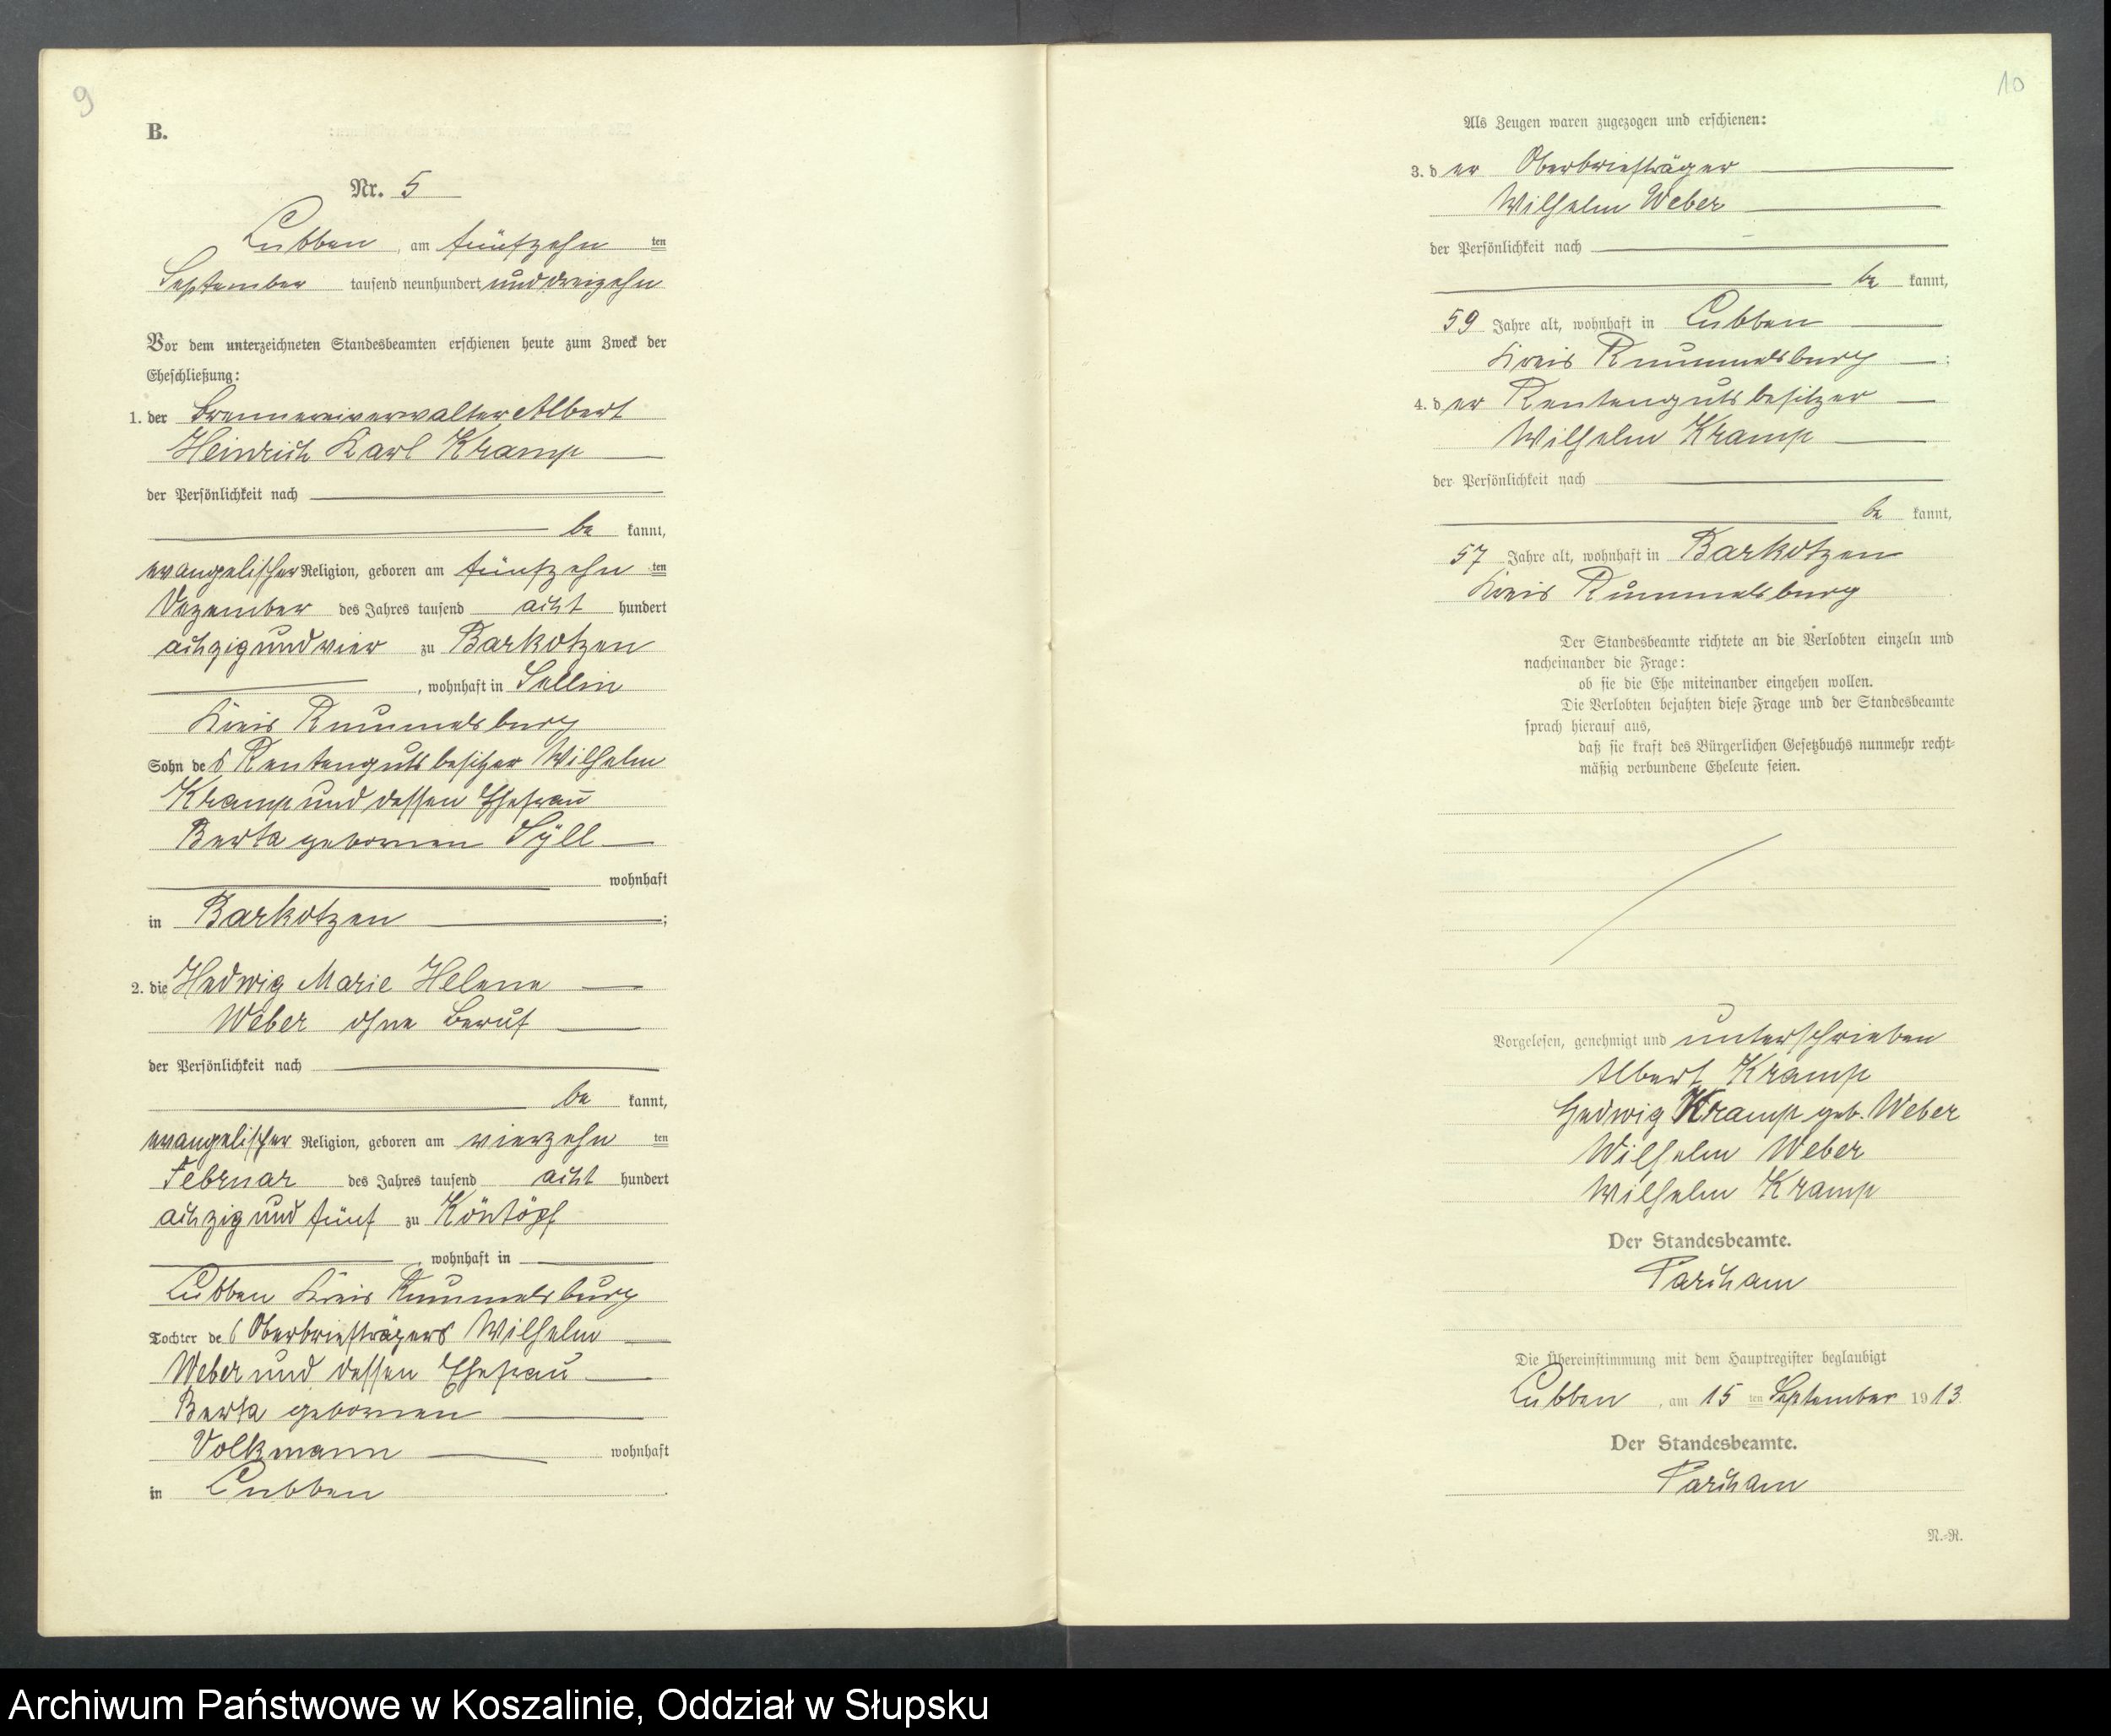 9
B.
Nr. 5
Lubben, am fünfzehn ten
September tausend neunhundert und dreizehn
Vor dem unterzeichneten Standesbeamten erschienen heute zum Zweck der
Eheschließung:
1. der Brennereiverwalter Albert
Heinrich Karl Kramp
der Persönlichkeit nach
be kannt,
evangelischer Religion, geboren am fünfzehn ten
Dezember des Jahres tausend acht hundert
achzig und vier zu Barkotzen
, wohnhaft in Sellin
Kreis Rummelsburg
Sohn des Rentengutsbesitzer Wilhelm
Kramp und dessen Ehefrau
Berta gebornen Syll
wohnhaft
in Barkotzen ;
2. die Hedwig Marie Helene
Weber ohne Beruf
der Persönlichkeit nach
be kannt,
evangelischer Religion, geboren am vierzehn ten
Februar des Jahres tausend acht hundert
achzig und fünf zu Köntopf
, wohnhaft in
Lubben Kreis Rummelsburg
Tochter des Oberbriefträgers Wilhelm
Weber und dessen Ehefrau
Berta gebornen
Volkmann wohnhaft
in Lubben .
10
Als Zeugen waren zugezogen und erschienen:
3. der Oberbriefträger
Wilhelm Weber
der Persönlichkeit nach
be kannt,
59 Jahre alt, wohnhaft in Lubben
Kreis Rummelsburg ;
4. der Rentengutsbesitzer
Wilhelm Kramp
der Persönlichkeit nach
be kannt,
57 Jahre alt, wohnhaft in Barkotzen
Kreis Rummelsburg
Der Standesbeamte richtete an die Verlobten einzeln und
nacheinander die Frage:
ob sie die Ehe miteinander eingehen wollen.
Die Verlobten bejahten diese Frage und der Standesbeamte
sprach hierauf aus,
daß sie kraft des Bürgerlichen Gesetzbuchs nunmehr recht-
mäßig verbundene Eheleute seien.
Vorgelesen, genehmigt und unterschrieben
Albert Kramp
Hedwig Kramp geb. Weber
Wilhelm Weber
Wilhelm Kramp
Der Standesbeamte.
Parcham
Die Übereinstimmung mit dem Hauptregister beglaubigt
Lubben, am 15 ten September 1913.
Der Standesbeamte.
Parcham
N.-R.
Archiwum Państwowe w Koszalinie, Oddział w Słupsku